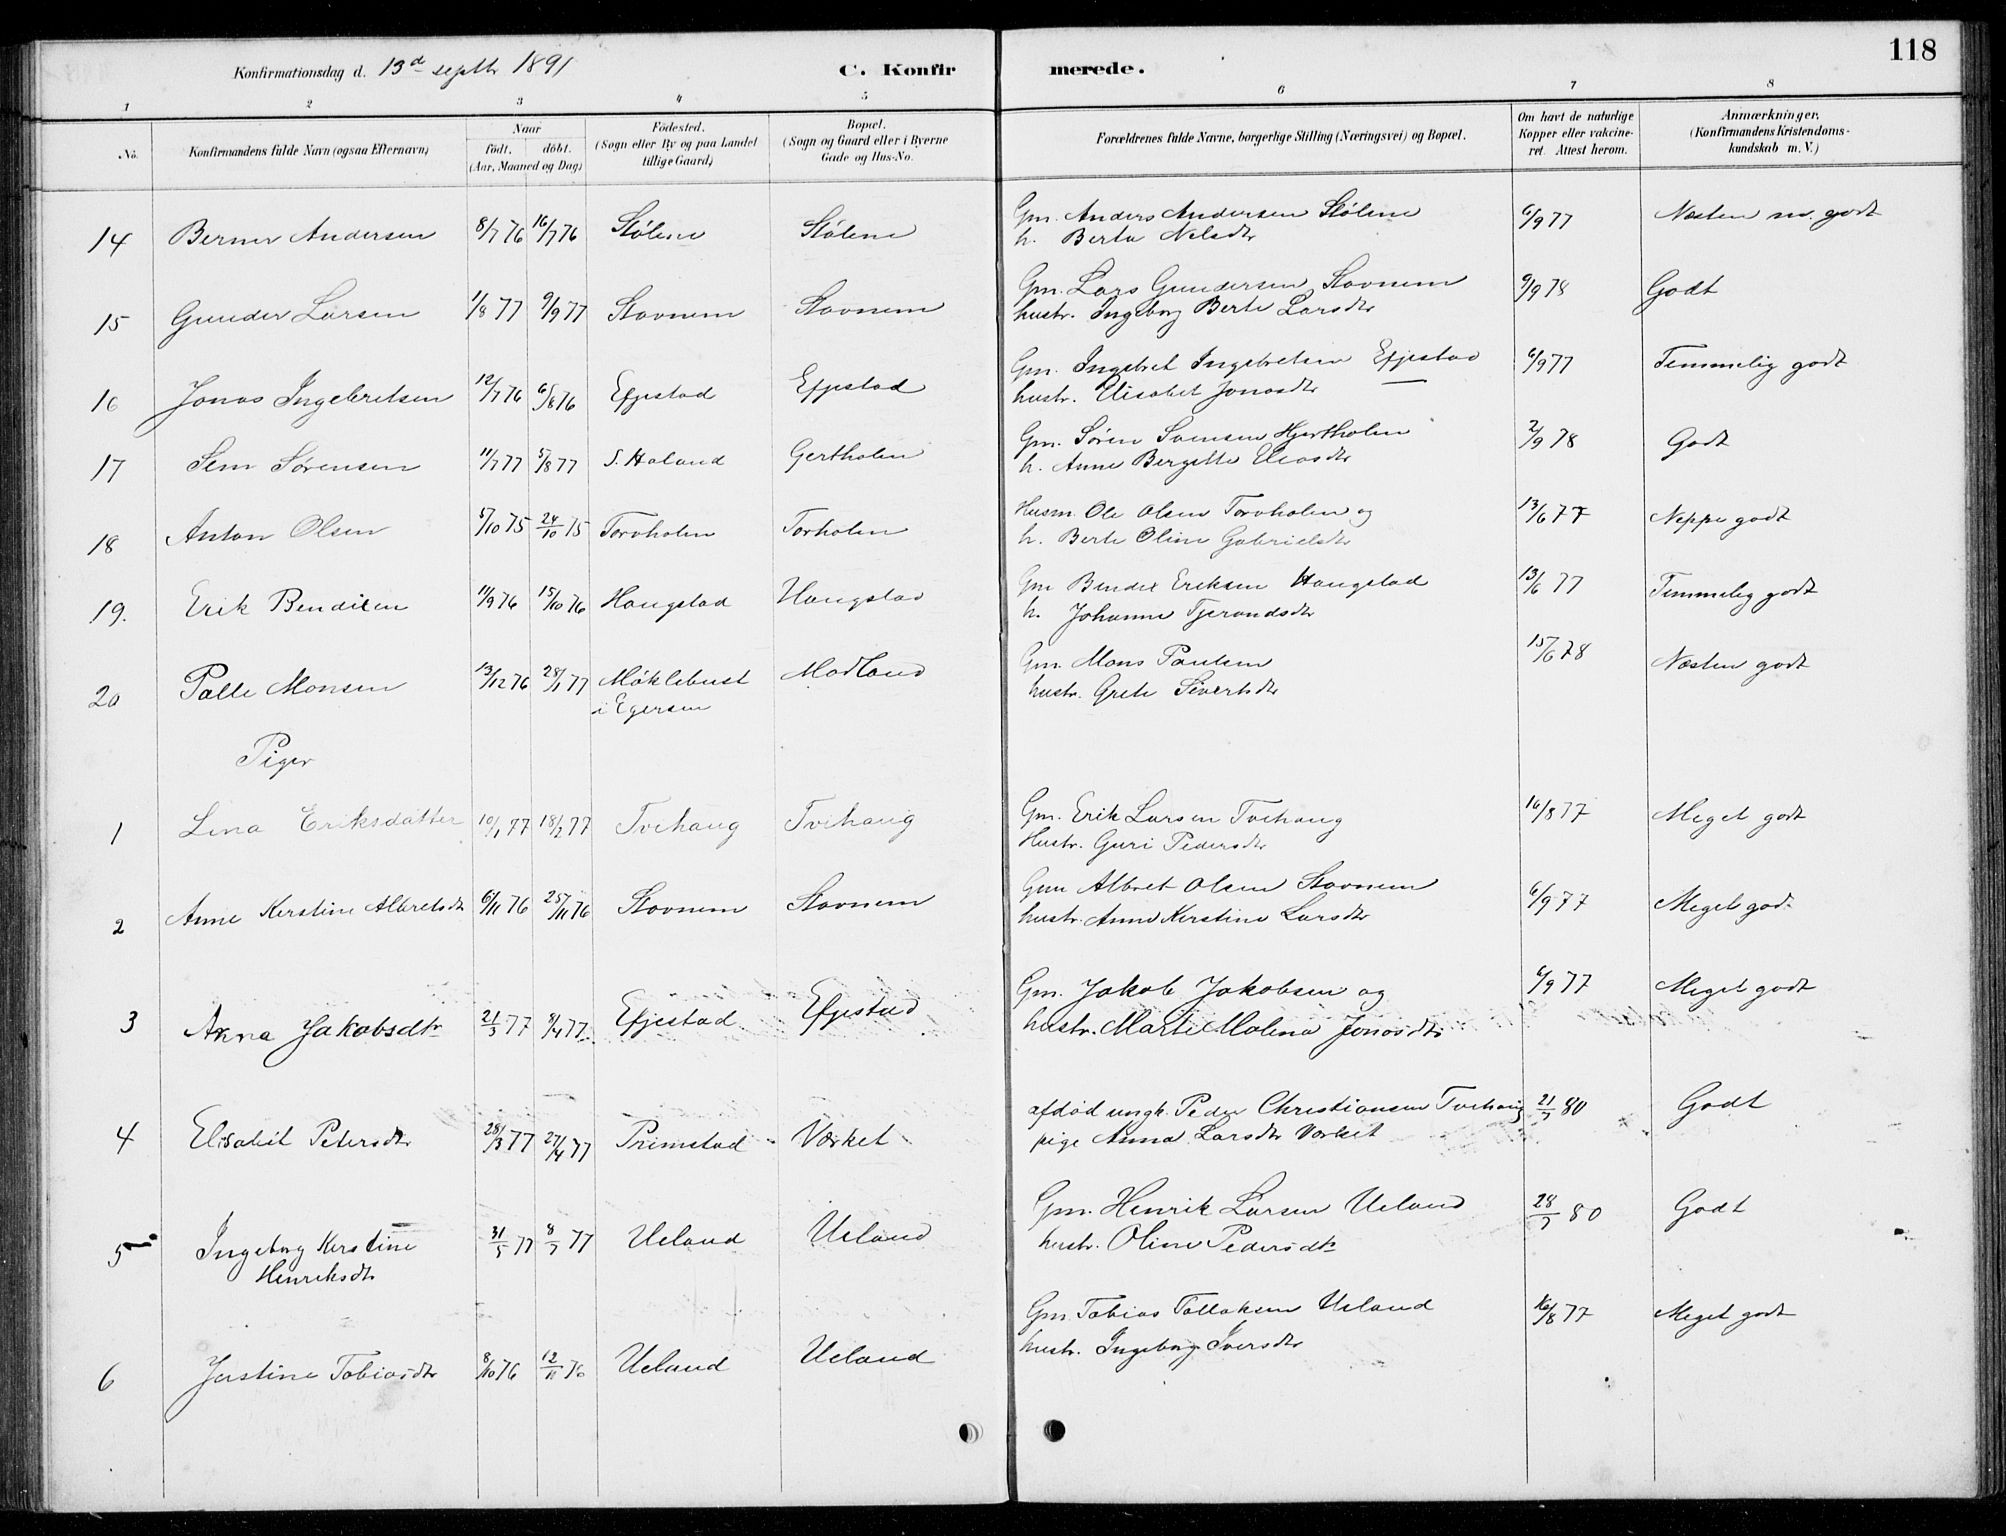 118
Konfirmationsdag d. 13d septbr 1891
C. Konfirmerede.
1 2 3 4 5 6 7 8
No.
Konfirmandens fulde Navn (ogsaa Efternavn)
Naar
födt. döbt.
(Aar, Maaned og Dag)
Födested.
(Sogn eller By og paa Landet
tillige Gaard)
Bopæl.
(Sogn og Gaard eller i Byerne
Gade og Hus-No.
Forældrenes fulde Navne, borgerlige Stilling (Næringsvei) og Bopæl.
Om havt de naturlige
Kopper eller vakcine-
ret. Attest herom.
Anmærkninger,
(Konfirmandens Kristendoms-
kundskab m. V.)
14 Berner Andersen 8/7 76 16/7 76 Stølene Stølene Gm. Anders Andersen Stølene 6/9 77 Næsten m. godt
h. Berta Nelsdtr
15 Gunder Larsen 1/8 77 9/9 77 Stavnem Stavnem Gm. Lars Gundersen Stavnem 9/9 78 Godt
hustr. Ingeborg Berte Larsdtr
16 Jonas Ingebretsen 12/7 76 6/8 76 Efjestad Efjestad Gm. Ingebret Ingebretsen Efjestad 6/9 77 Temmelig godt
hustr. Elisabet Jonasdtr
17 Sem Sørensen 11/7 77 5/8 77 S. Haland Gertholen Gm. Søren Semsen Hjertholen 2/9 78 Godt
h. Anne Bergitte Eliasdtr
18 Anton Olsen 5/10 75 24/10 75 Torvholen Torholen Husm. Ole Olsen Torvholen og 13/6 77 Neppe godt
h. Berte Oline Gabrielsdtr
19. Erik Bendixen 11/9 76 15/10 76 Haugstad Haugstad Gm Bendix Eriksen Haugstad 13/6 77 Temmelig godt
h. Johanne Tjerandsdtr
20 Palle Monsen 13/12 76 28/1 77 Møklebust Modland Gm. Mons Paulsen 15/6 78 Næsten godt
i Egersun hustr. Grete Sivertsdtr
Piger
1 Lina Eriksdatter 10/1 77 18/2 77 Tvehaug Tvehaug Gm. Erik Larsen Tvehaug 16/8 77 Meget godt
Hustr. Guri Pedersdtr
2 Anne Kerstine Albretsdtr 6/11 76 25/11 76 Stavnem Stavnem Gm Albret Olsen Stavnem 6/9 77 Meget god.
hustr. Anne Kerstine Larsdtr
3 Anna Jakobsdtr 21/3 77 8/4 77. Efjestad Efjestad Gm. Jakob Jakobsen og 6/9 77 Meget godt
hustr. Marte Malena Jonasdtr
4 Elisabet Petersdtr 28/3 77 27/4 77 Primstad Værket afdød ungk. Peder Christiansen Tvehaug 21/7 80 Godt
pige Anna Larsdtr Værket
5 Ingeborg Kerstine 31/5 77 8/7 77 Ueland Ueland Gm. Henrik Larsen Ueland 28/7 80 Godt
Henriksdtr hustr. Oline Pedersdtr
6 Justine Tobiasdtr 8/10 76 12/11 76 Ueland Ueland Gm Tobias Tollaksen Ueland 16/8 77 Meget godt
hustr. Ingeborg Iversdtr